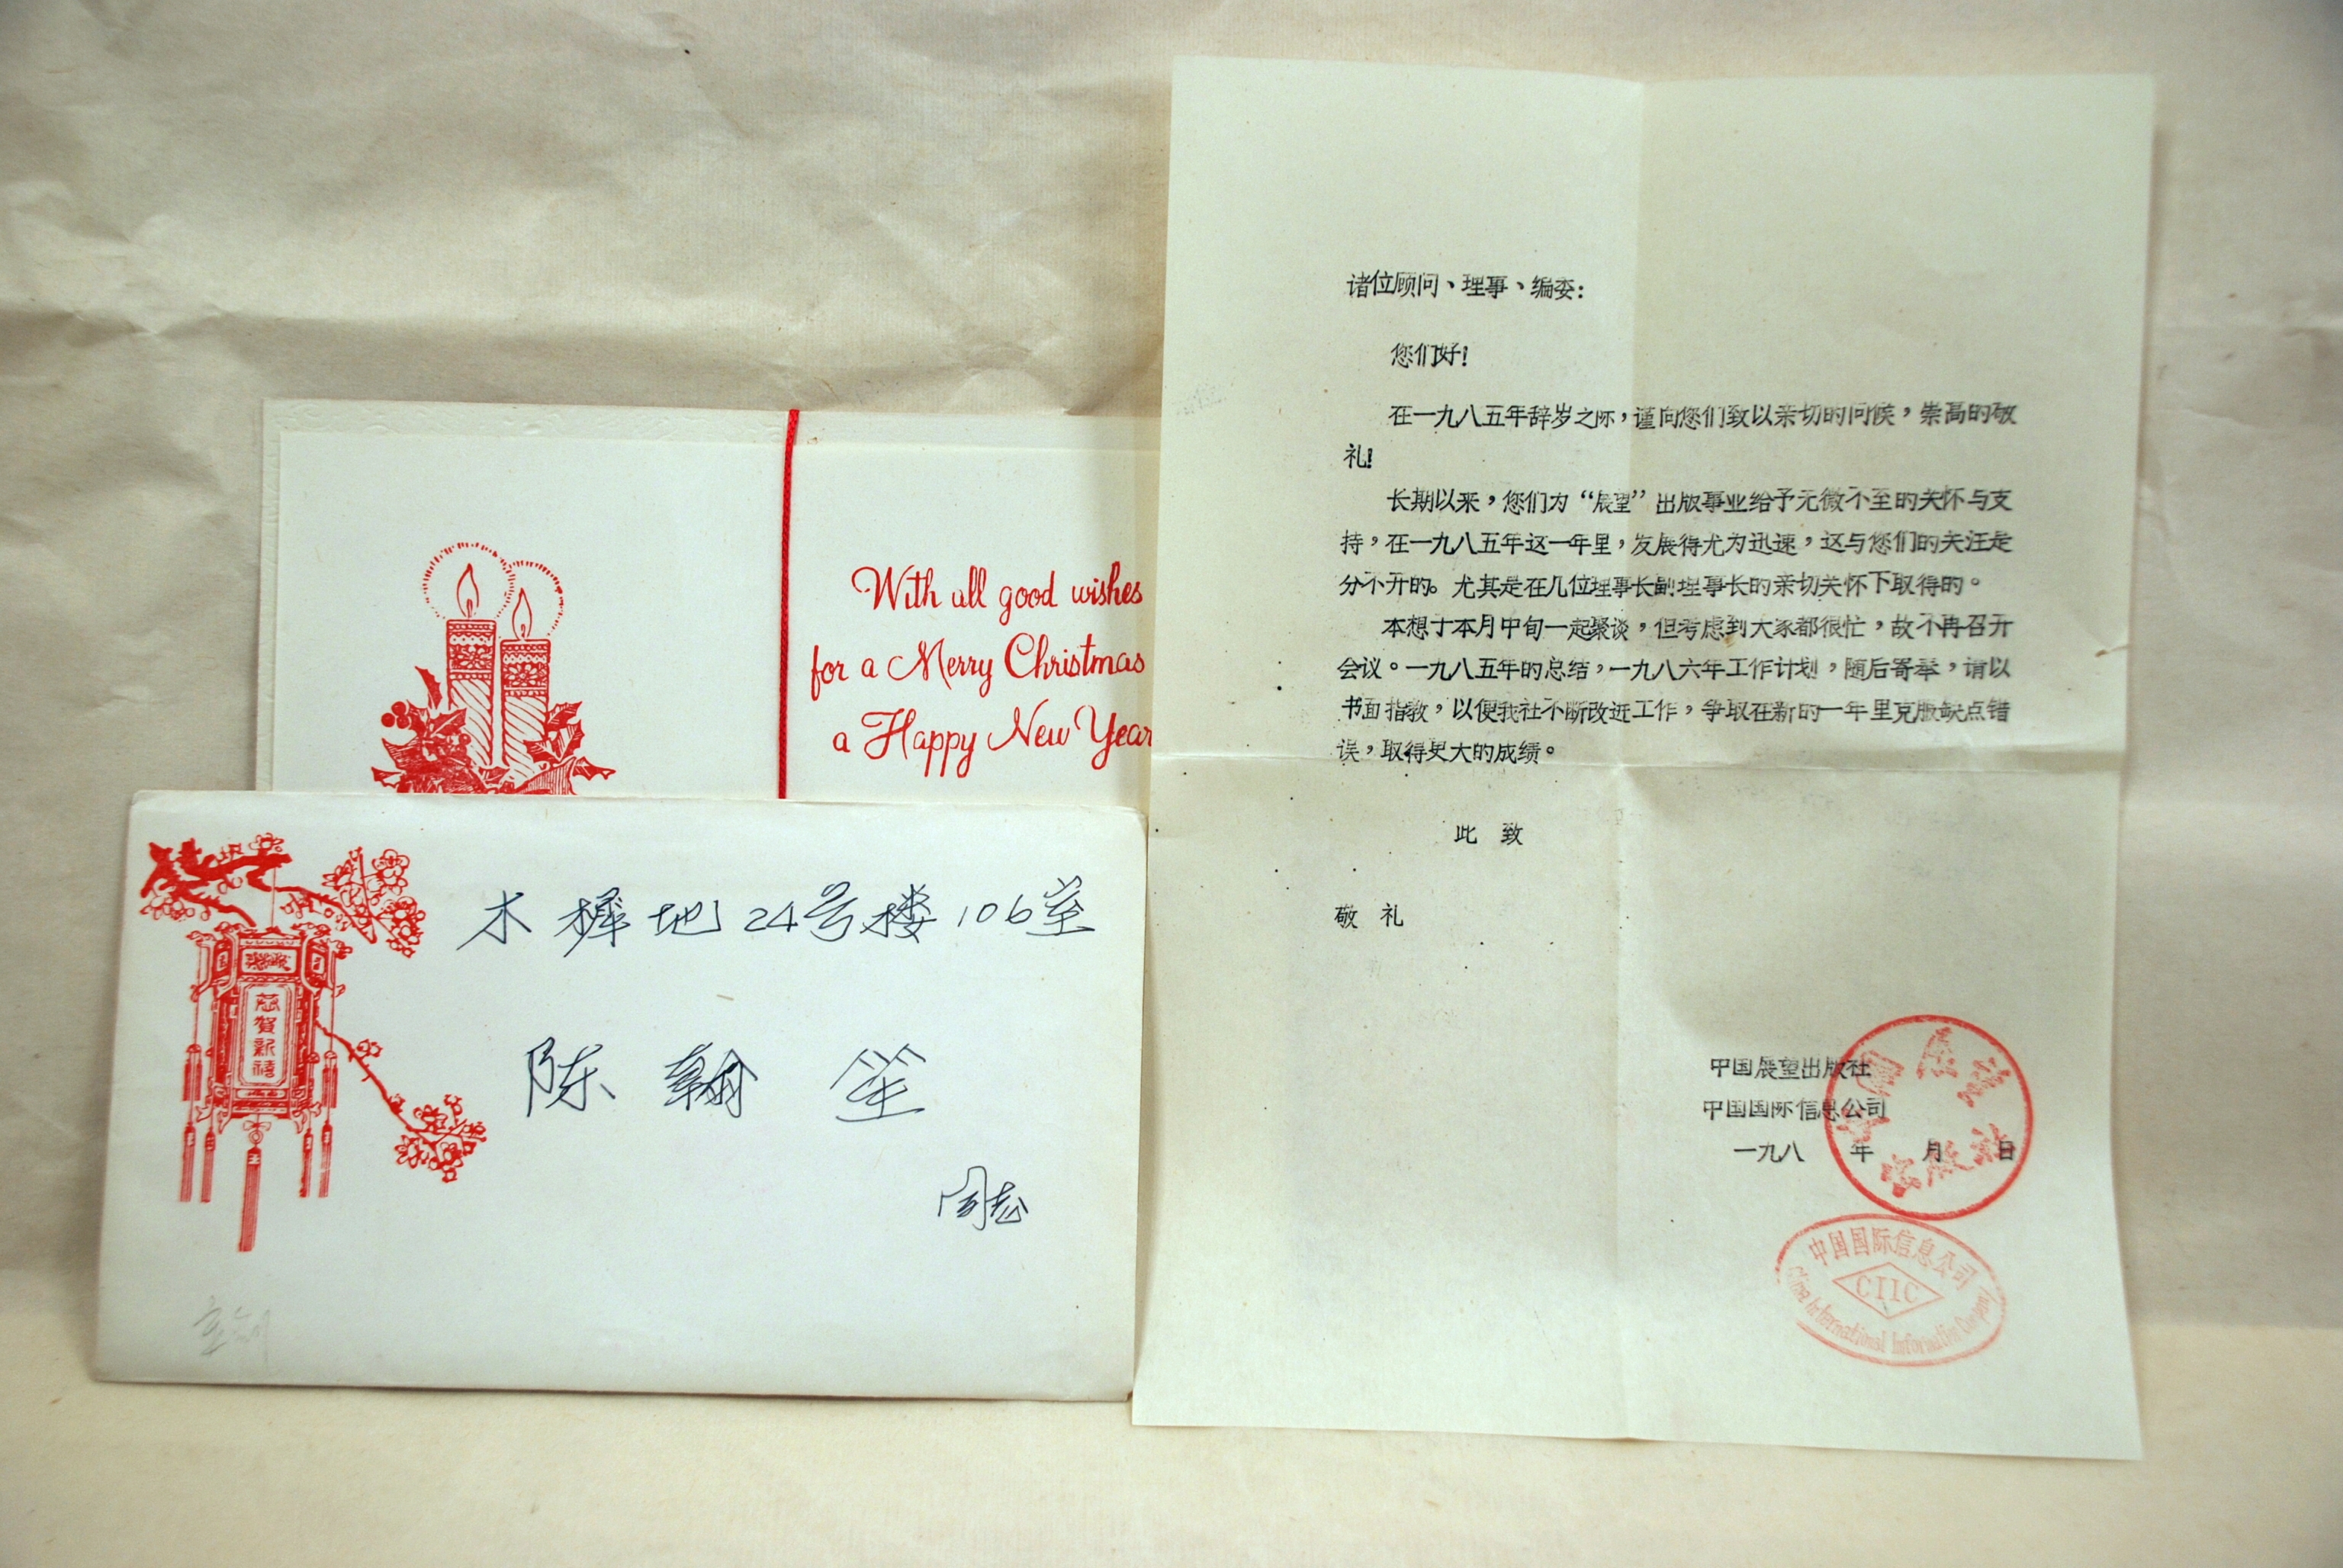 With all good wishes
for a Merry Christmas
a Happy New Year
恭賀新禧
木樨地24号楼106室
陈翰笙
同志
诸位顾问、理事、编委:
您们好!
在一九八五年辞岁之际,谨向您们致以亲切的问候,崇高的敬
礼!
长期以来,您们为“展望”出版事业给予无微不至的关怀与支
持,在一九八五年这一年里,发展得尤为迅速,这与您们的关注是
分不开的。尤其是在几位理事长副理事长的亲切关怀下取得的。
本想于本月中旬一起聚谈,但考虑到大家都很忙,故不再召开
会议。一九八五年的总结,一九八六年工作计划,随后寄奉,请以
书面指教,以便我社不断改进工作,争取在新的一年里克服缺点错
误,取得更大的成绩。
此 致
敬 礼
中国展望出版社
中国国际信息公司
一九八 年 月 日
中国展望出版社
中国国际信息公司
CIIC
China International Information Company